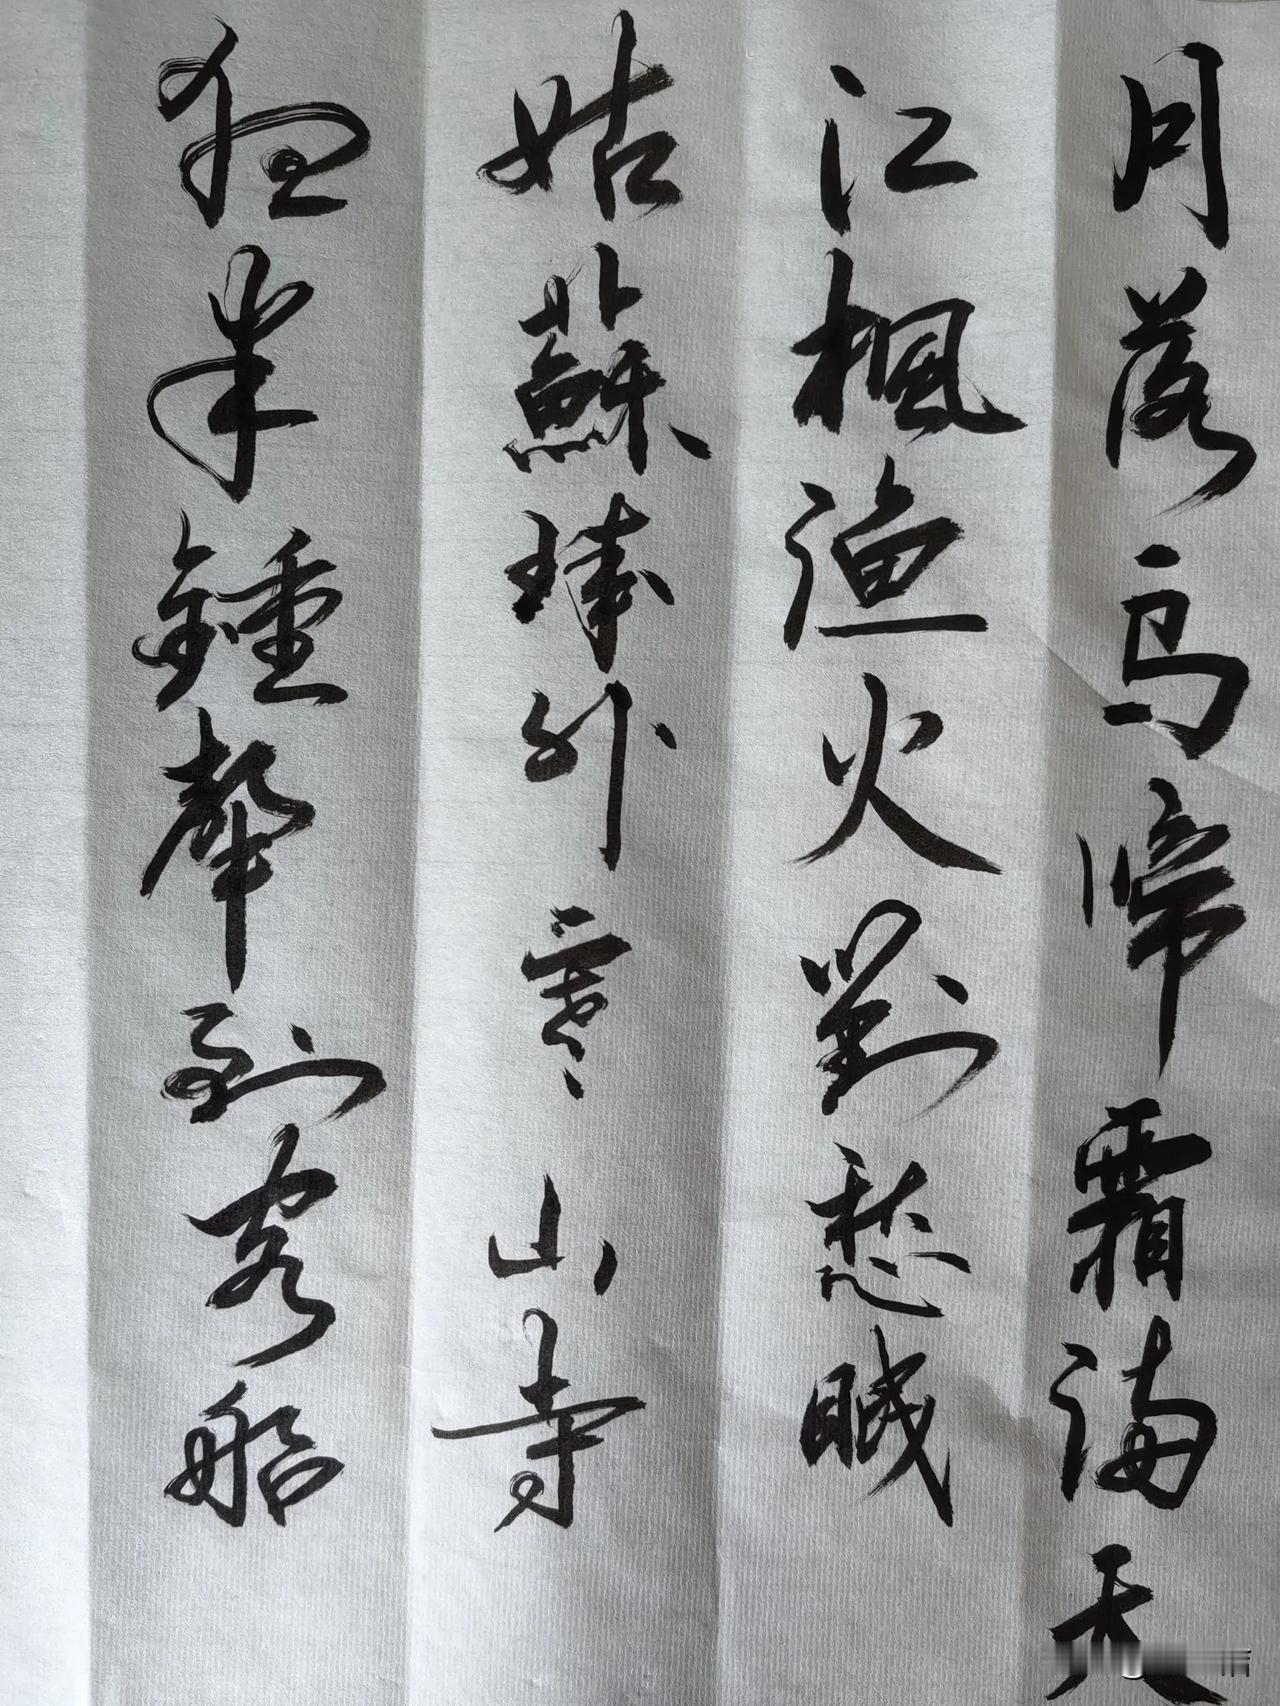 月落乌啼霜满天
江楓渔火對愁眠
姑蘇城外寒山寺
夜半鍾聲到客船